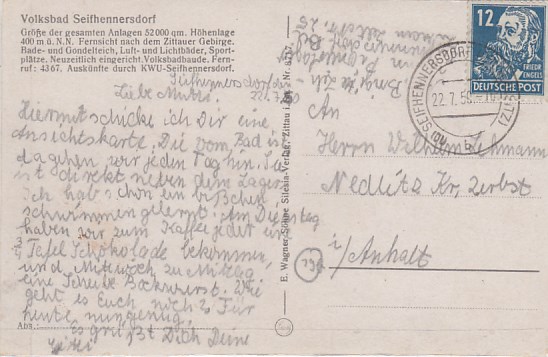 Volksbad Seifhennersdorf
Größe der gesamten Anlagen 52 000 qm. Höhenlage
400 m ü. N.N. Fernsicht nach dem Zittauer Gebirge.
Bade- und Gondelteich, Luft- und Lichtbäder, Sport-
plätze. Neuzeitlich eingericht. Volksbadbaude. Fern-
ruf: 4367. Auskünfte durch KWU-Seifhennersdorf.
Seifhennersdorf
Liebe Mutti! 22.7.50
Hiermit schicke ich Dir eine
Ansichtskarte. Die vom Bad ist
da gehen wir jeden Tag hin. Sie
ist direkt neben dem Lager
ich hab schon ein bißchen
schwimmen gelernt. Am Dienstag
haben wir zum Kaffee jeder eine
Tafel Schokolade bekommen,
und Mittwoch zu Mittag
eine Scheibe Bockwurst. Wie
geht es Euch noch? Für
heute nun genug,
Es grüßt Dich Deine
Abs.:
E. Wagner Söhne Silesia-Verlag, Zittau i. Sa. Nr.
12
FRIEDR. ENGELS
DEUTSCHE POST
SEIFHENNERSDORF
22.7.50
b
An
Herrn Wilhelm Lehmann
Nedlitz Kr. Zerbst
i/Anhalt